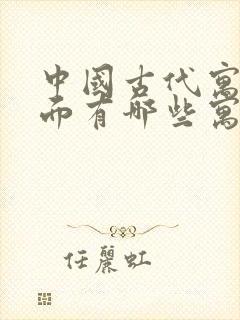 中國古代寓
而有哪些寓
任麗虹